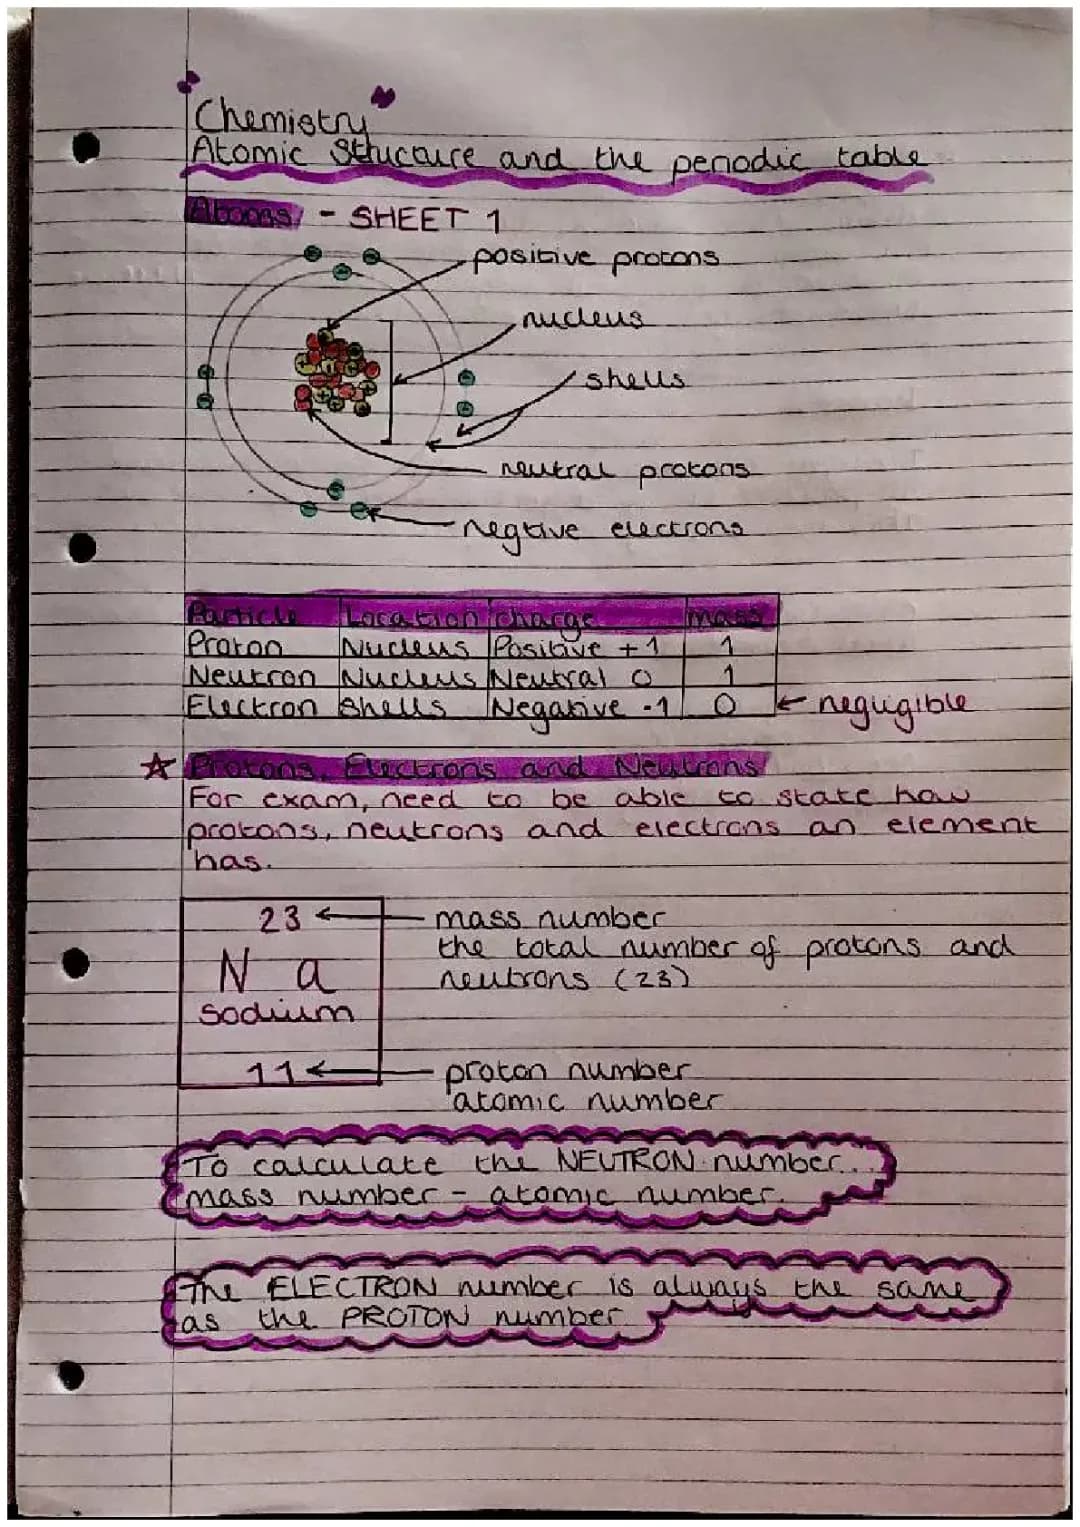 Chemistry
Atomic Structure and the periodic table
Atoms - SHEET 1
positive protons
nucleus
shells
neutral protons
negtive electrons
Particle Location charge mass
Proton Nucleus Positive +1 1
Neutron Nucleus Neutral 0 1
Electron Shells Negative -1 0 ← negligible
☆ Protons, Electrons and Neutrons
For exam, need to be able to state how
protons, neutrons and electrons an element
has.
23 ← mass number
the total number of protons and
neutrons (23)
Na
sodium
11 ← proton number
atomic number
To calculate the NEUTRON number...
mass number - atomic number.
The ELECTRON number is always the same
as the PROTON number